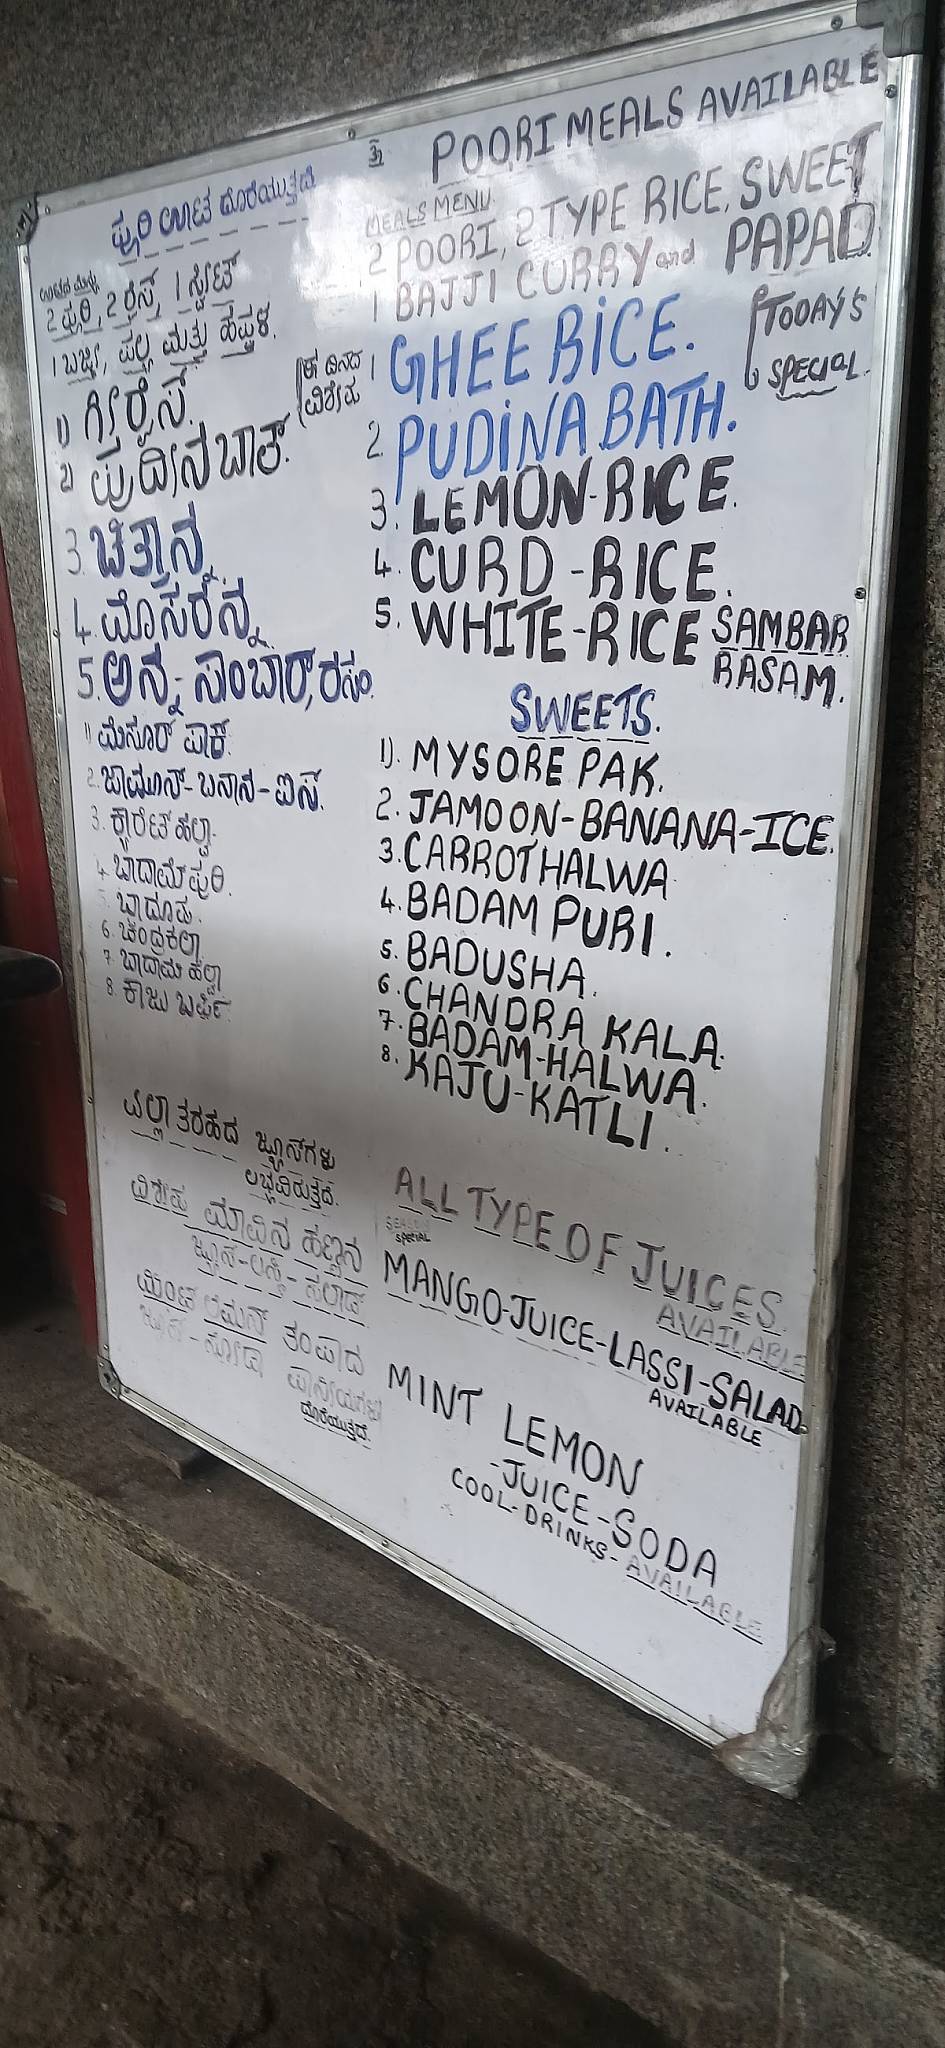 ಪೂರಿ ಊಟ ದೊರೆಯುತ್ತದೆ
ಊಟದ ಮೆನು
2 ಪೂರಿ, 2 ರೈಸ್, 1 ಸ್ವೀಟ್
1 ಬಜ್ಜಿ, ಪಲ್ಯ ಮತ್ತು ಹಪ್ಪಳ.
ಈ ದಿನದ
ವಿಶೇಷ
1) ಗೀರೈಸ್.
2) ಪುದೀನ ಬಾತ್.
3. ಚಿತ್ರಾನ್ನ
4. ಮೊಸರನ್ನ
5. ಅನ್ನ- ಸಾಂಬಾರ್, ರಸಂ.
1) ಮೈಸೂರ್ ಪಾಕ್.
2. ಜಾಮೂನ್-ಬನಾನ-ಐಸ್.
3. ಕ್ಯಾರೆಟ್ ಹಲ್ವಾ.
4. ಬಾದಾಮ್ ಪುರಿ.
5. ಬಾದೂಷ.
6. ಚಂದ್ರಕಲಾ
7. ಬಾದಾಮ್ ಹಲ್ವಾ
8. ಕಾಜು ಬರ್ಫಿ.
ಎಲ್ಲಾ ತರಹದ ಜ್ಯೂಸ್‌ಗಳು
ಲಭ್ಯವಿರುತ್ತದೆ.
ವಿಶೇಷ ಮಾವಿನ ಹಣ್ಣಿನ
ಜ್ಯೂಸ್-ಲಸ್ಸಿ-ಸಲಾಡ್
ಮಿಂಟ್ ಲೆಮನ್ ತಂಪಾದ
ಜ್ಯೂಸ್-ಸೋಡಾ ಪಾನೀಯಗಳು
ದೊರೆಯುತ್ತದೆ.
ॐ
POORI MEALS AVAILABLE
MEALS MENU
2 POORI, 2 TYPE RICE, SWEET
1 BAJJI CURRY and PAPAD
TODAY'S
SPECIAL.
1 GHEE RICE.
2. PUDINA BATH.
3. LEMON-RICE.
4. CURD-RICE.
5. WHITE-RICE SAMBAR
RASAM.
SWEETS.
1). MYSORE PAK.
2. JAMOON-BANANA-ICE.
3. CARROT HALWA
4. BADAM PURI.
5. BADUSHA.
6. CHANDRA KALA.
7. BADAM-HALWA.
8. KAJU-KATLI.
ALL TYPE OF JUICES
AVAILABLE
SEASON
SPECIAL
MANGO-JUICE-LASSI-SALAD-
AVAILABLE
MINT LEMON
-JUICE-SODA
COOL-DRINKS-AVAILABLE